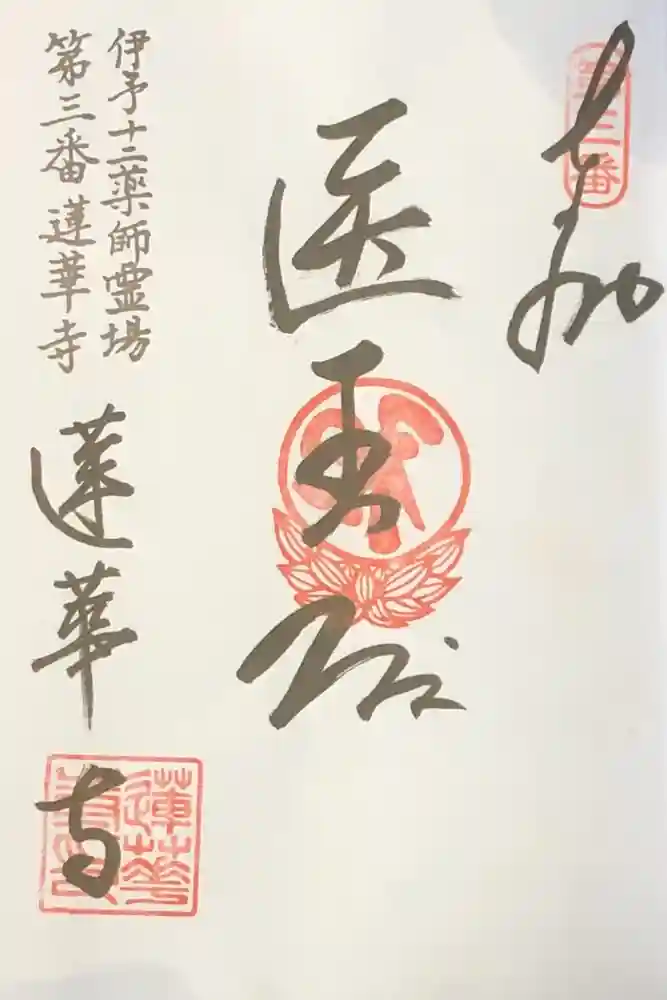 第三番
奉拝
医王殿
伊予十二薬師霊場
第三番蓮華寺
蓮華寺
蓮華
寺印